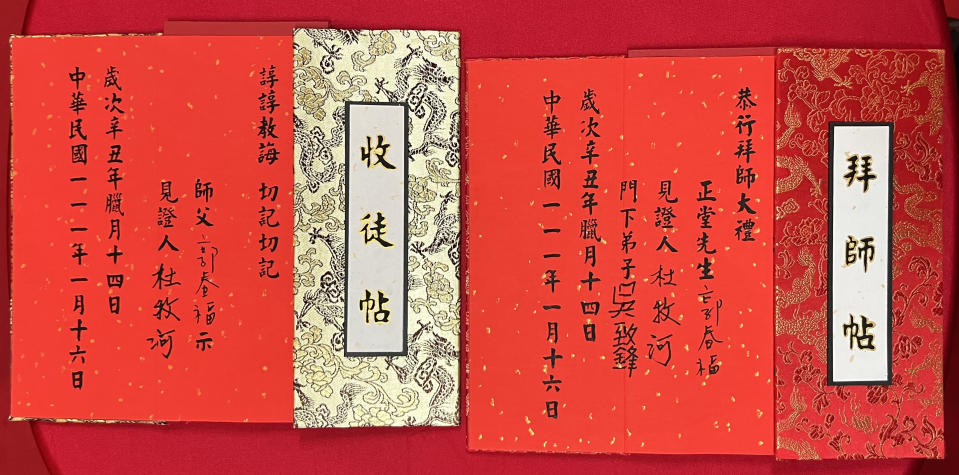 拜師帖
恭行拜師大禮
正堂先生 郭春福
見證人 杜牧河
門下弟子 吳致鋒
歲次辛丑年臘月十四日
中華民國一一一年一月十六日
收徒帖
諄諄教誨 切記切記
師父 郭春福 示
見證人 杜牧河
歲次辛丑年臘月十四日
中華民國一一一年一月十六日